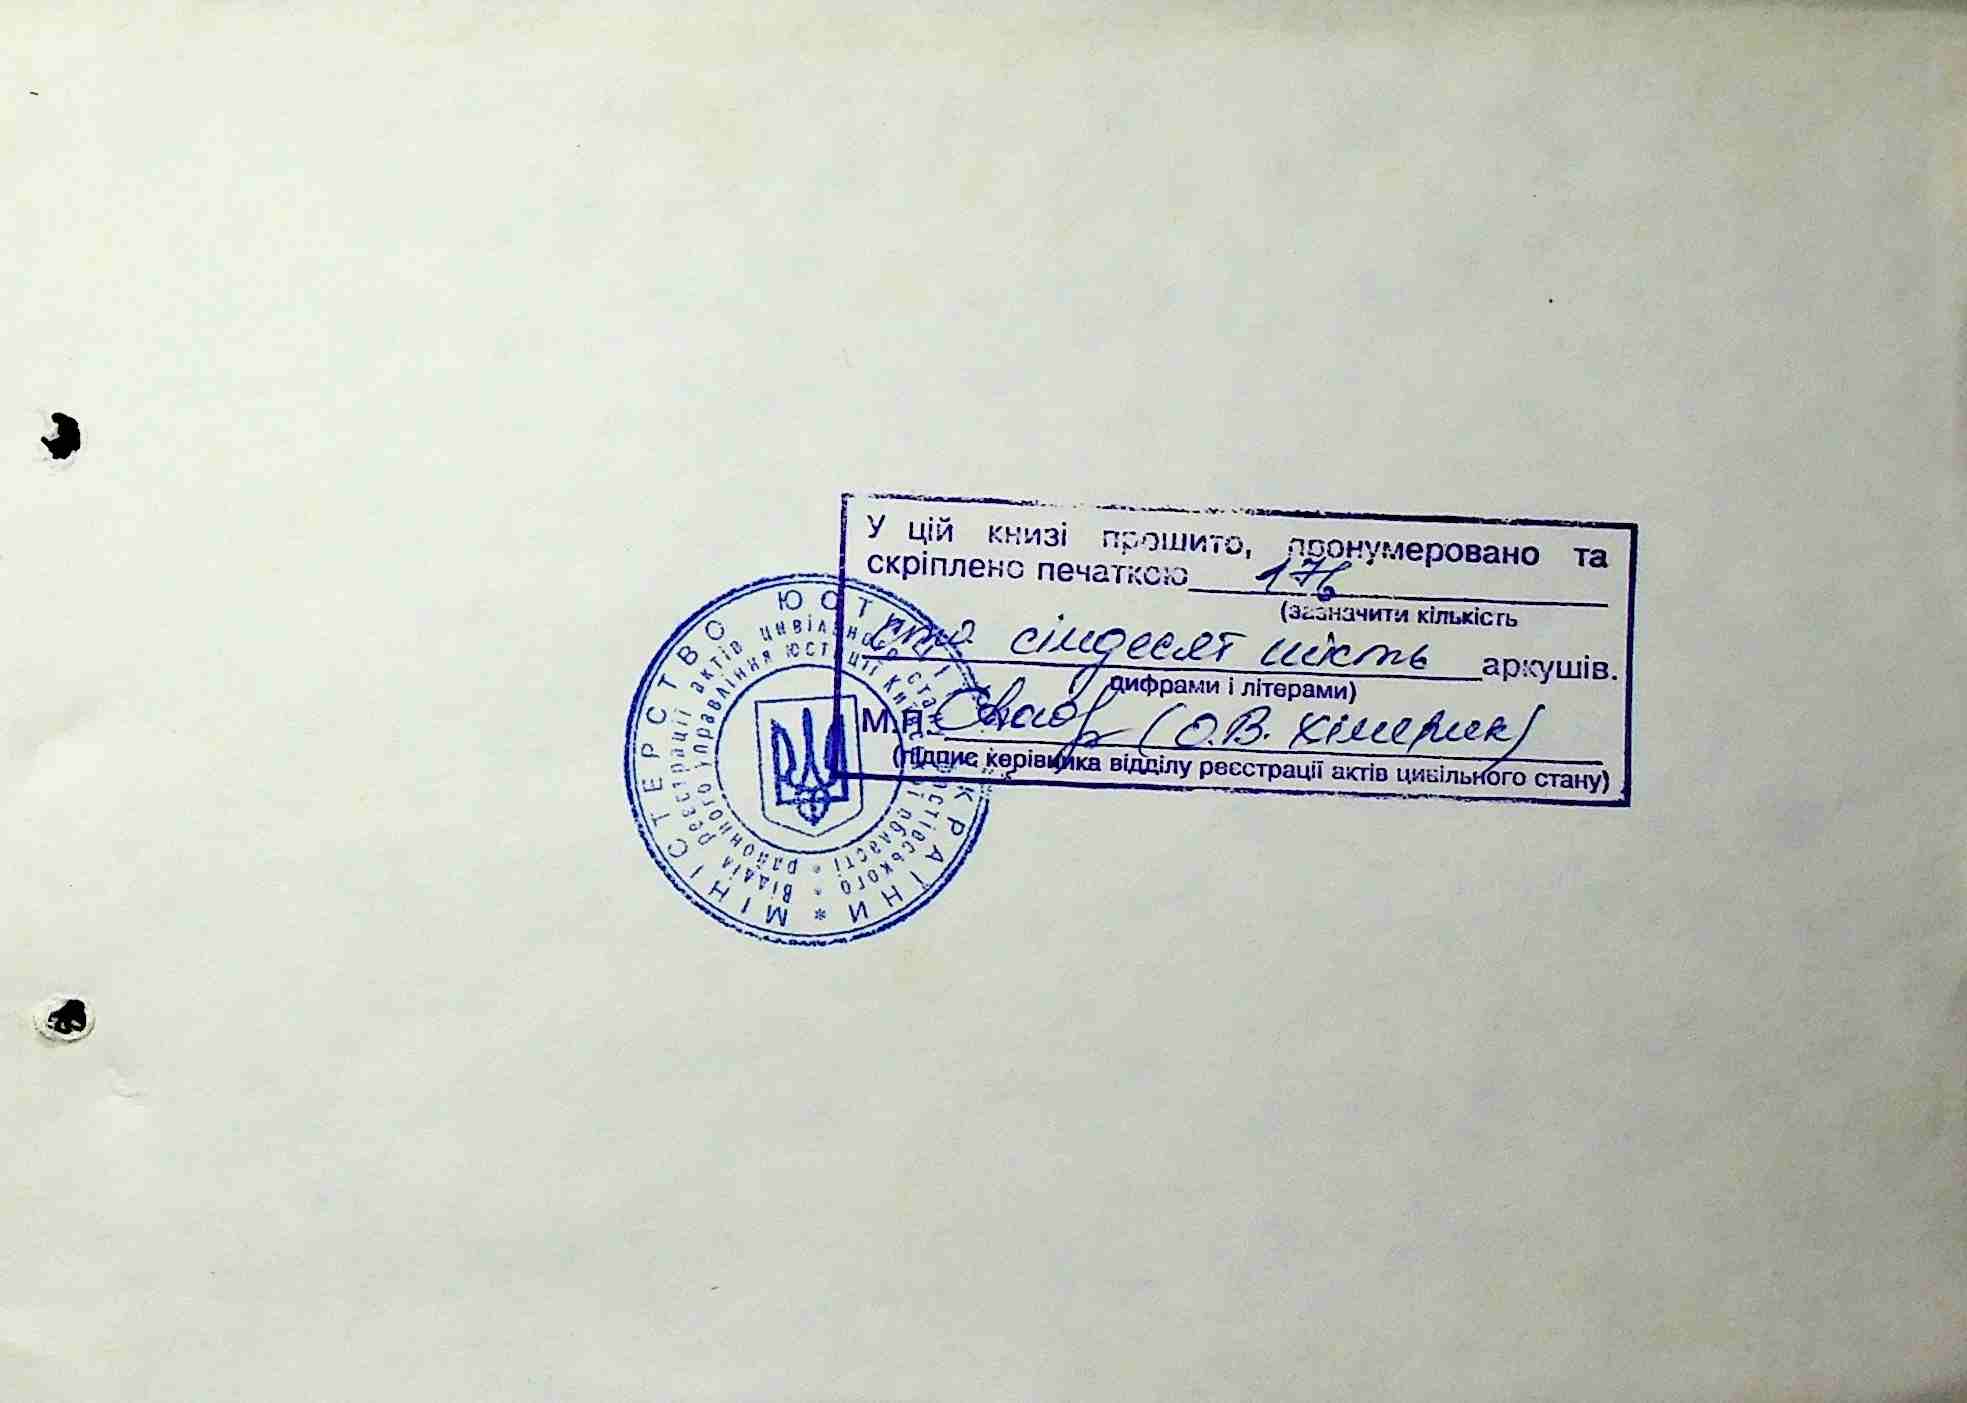 У цій книзі прошито, пронумеровано та
скріплено печаткою 176
(зазначити кількість
сто сімдесят шість аркушів.
цифрами і літерами)
М.П. (О.В. Химерик)
(підпис керівника відділу реєстрації актів цивільного стану)
МІНІСТЕРСТВО ЮСТИЦІЇ УКРАЇНИ *
Відділ реєстрації актів цивільного стану
районного управління юстиції Київської області *